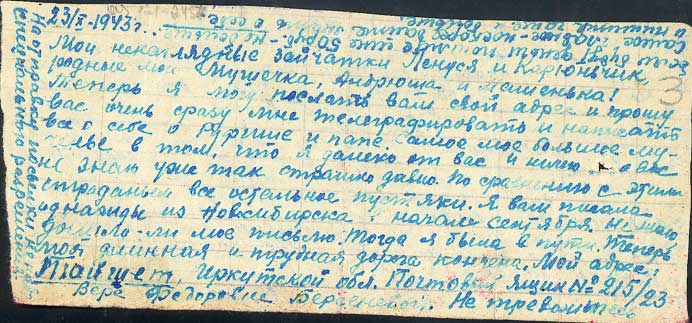 23/IX-1943 г.
Мои ненаглядные зайчатки Ленуся и Кэрюньчик,
родные мои Мушечка, Андрюша и Машенька!
Теперь я могу послать вам свой адрес и прошу
вас очень сразу мне телеграфировать и написать
все о себе о и папе. Самое мое большое му-
ченье в том, что я далеко от вас и ничего о вас
не знаю уже так страшно давно. По сравнению с этим
страданьем все остальное пустяки. Я вам писала
однажды из Новосибирска в начале сентября. Не знаю
дошло-ли мое письмо. Тогда я была в пути. Теперь
моя длинная и трудная дорога кончена. Мой адрес:
Тайшет, Иркутской обл. Почтовый ящик № 215/23
Вере Федоровне Берсеневой. Не тревожьтесь
На отправку посылки
специального разрешения
Самое главное